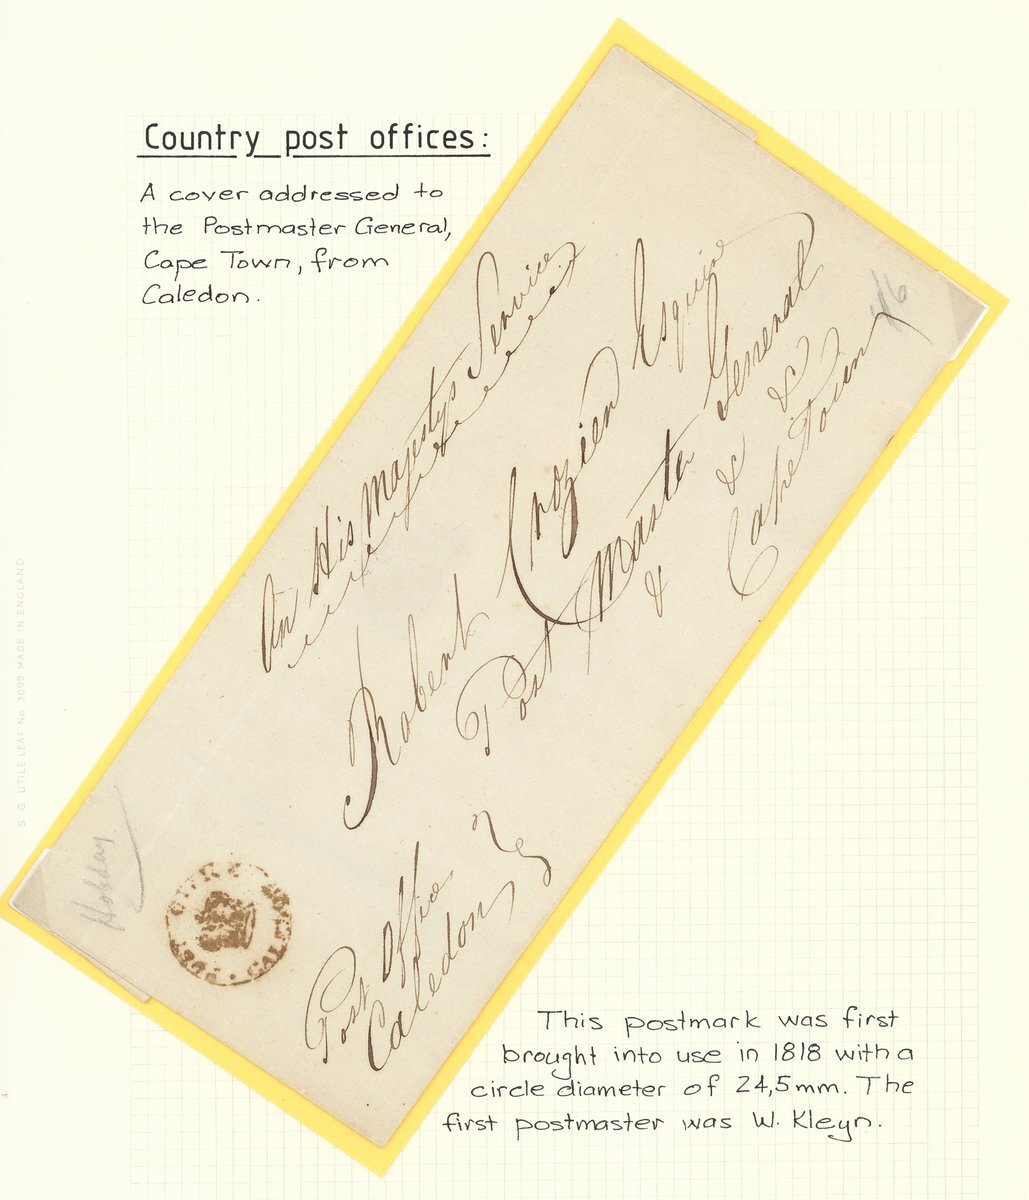 Country post offices:
A cover addressed to
the Postmaster General,
Cape Town, from
Caledon.
On His Majestys Service
Robert Crozier Esquire
Post Master General
& & &
Cape Town
Post Office
Caledon
Hobday
CALEDON
This postmark was first
brought into use in 1818 with a
circle diameter of 24,5mm. The
first postmaster was W. Kleyn.
S G UTILE LEAF No. 3099 MADE IN ENGLAND